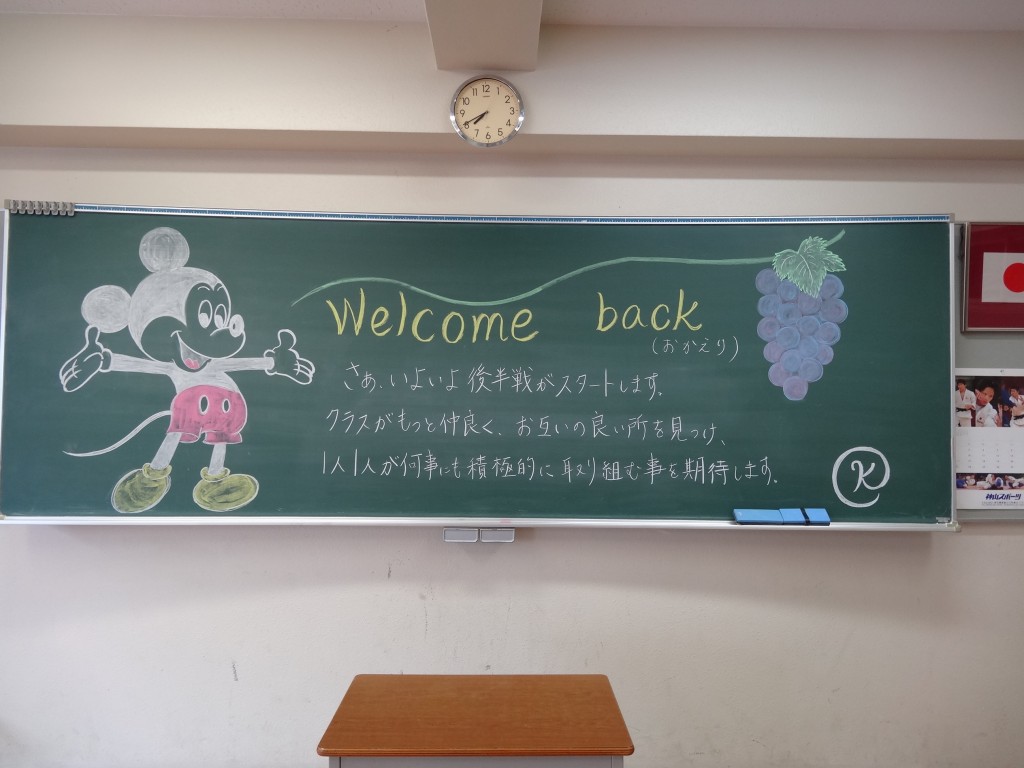 12 1 2 3 4 5 6 7 8 9 10 11
Welcome back
(おかえり)
さぁ、いよいよ後半戦がスタートします。
クラスがもっと仲良く、お互いの良い所を見つけ、
1人1人が何事にも積極的に取り組む事を期待します。
K